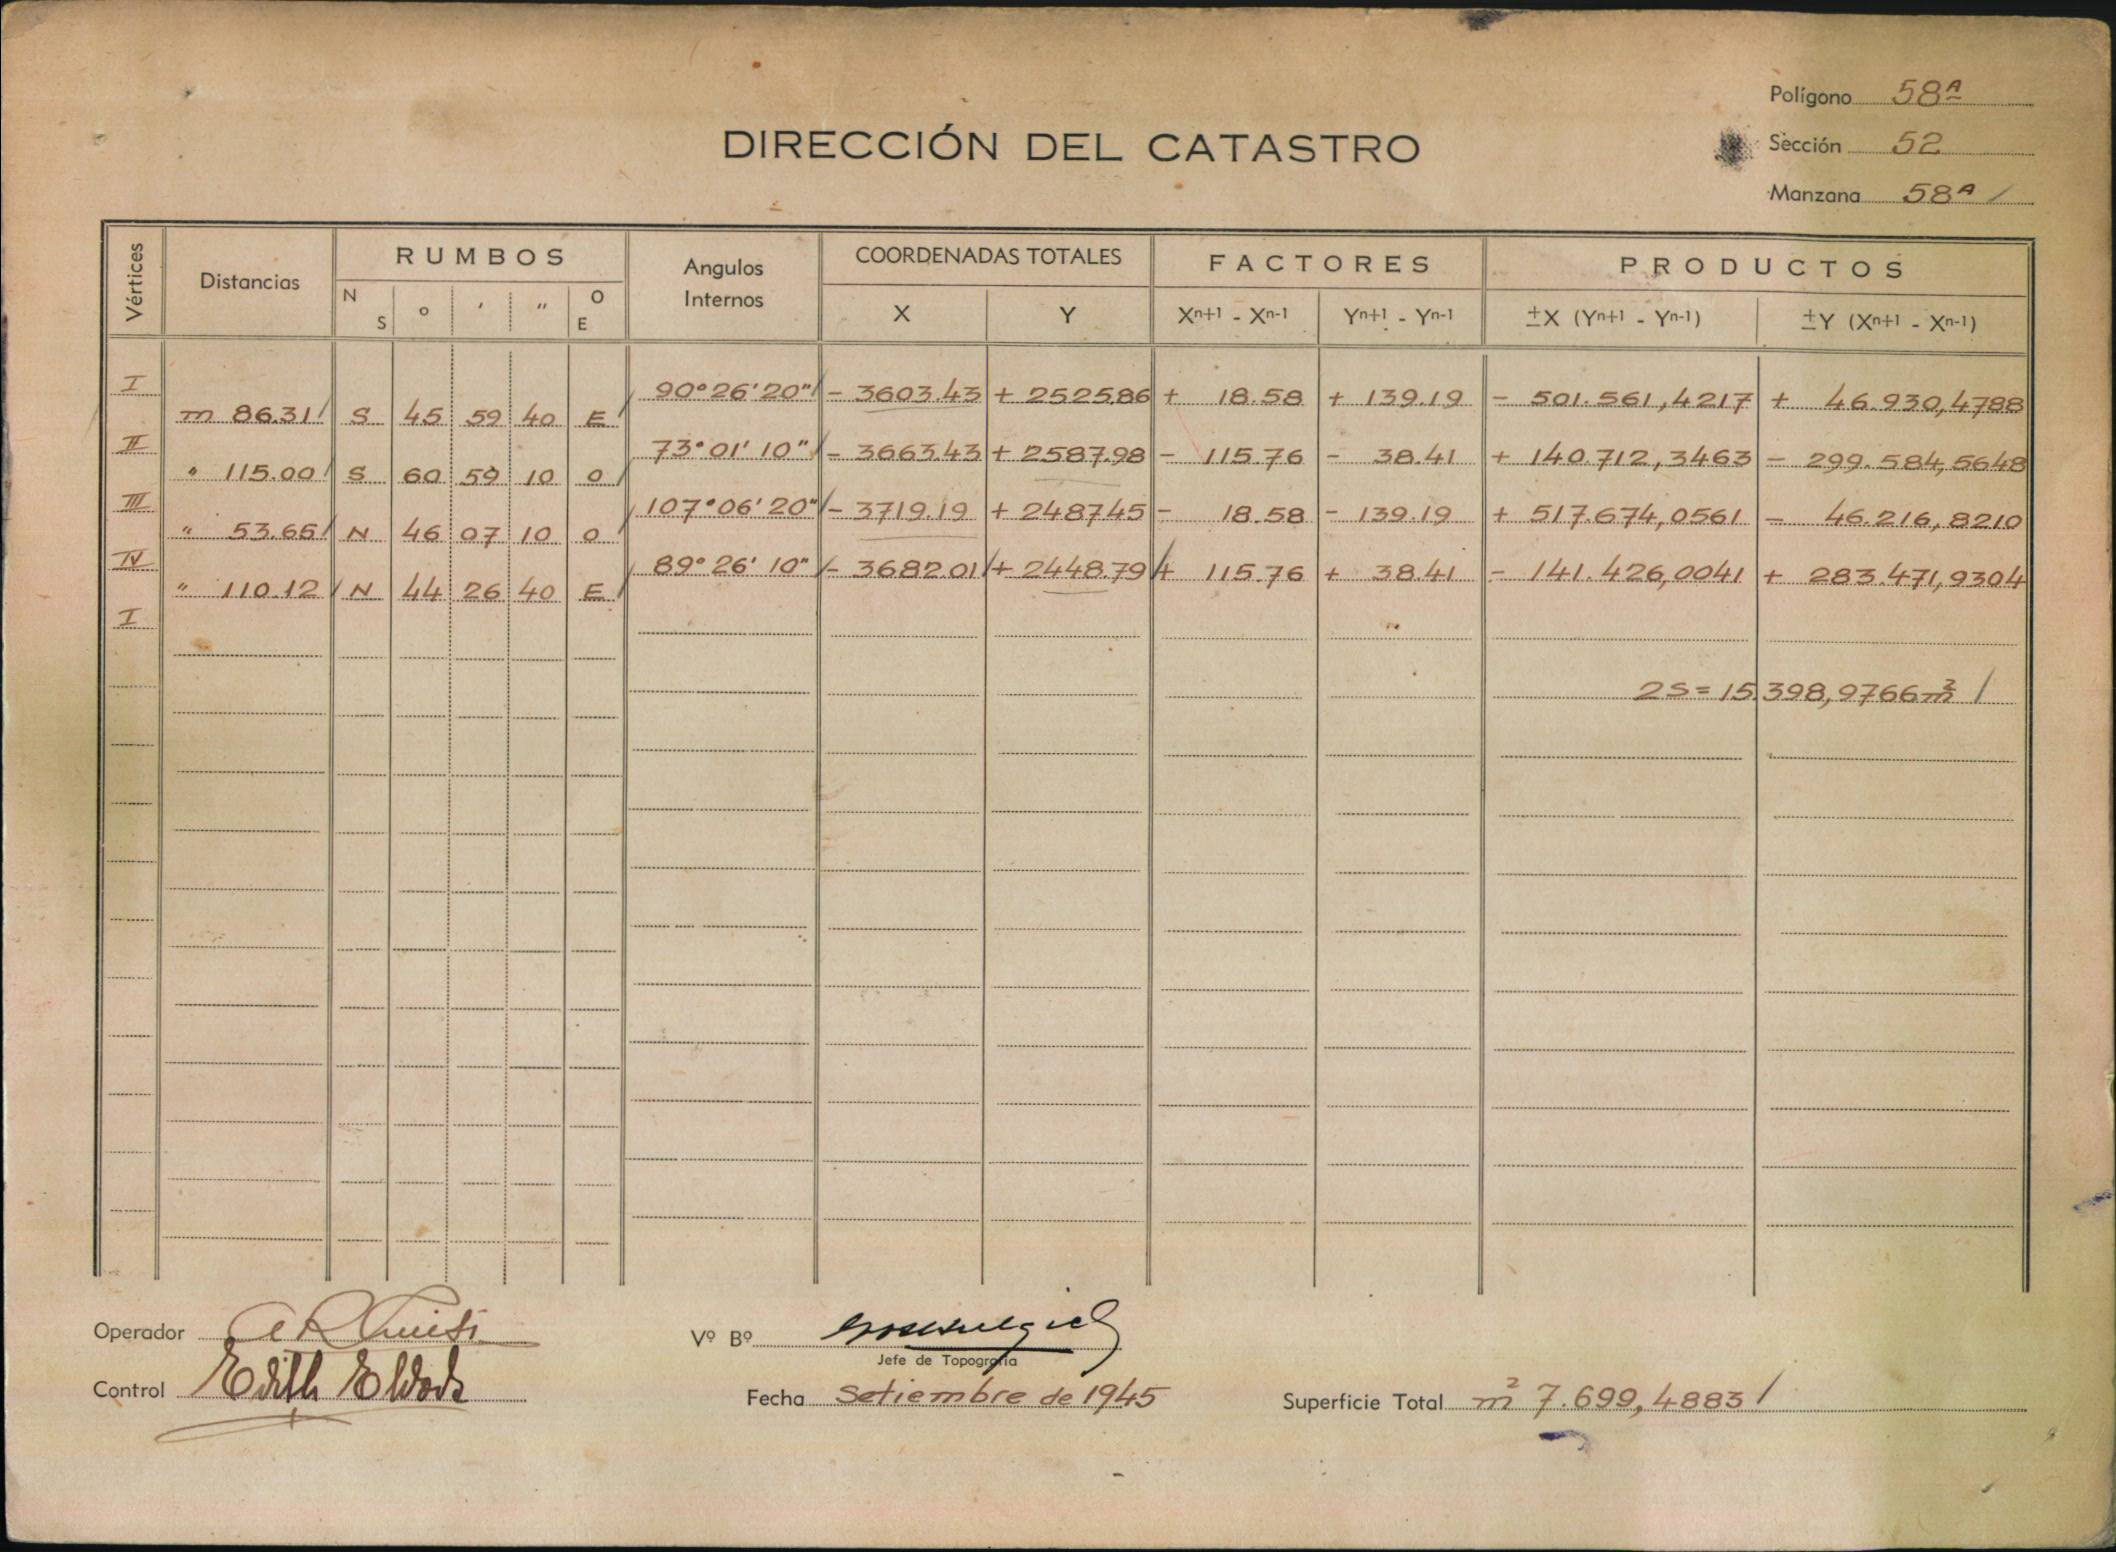 Polígono 58ᴬ
DIRECCIÓN DEL CATASTRO
Sección 52
Manzana 58ᴬ /
Vértices Distancias RUMBOS Angulos Internos COORDENADAS TOTALES FACTORES PRODUCTOS
N S ° ' " O E X Y Xⁿ⁺¹ - Xⁿ⁻¹ Yⁿ⁺¹ - Yⁿ⁻¹ ±X (Yⁿ⁺¹ - Yⁿ⁻¹) ±Y (Xⁿ⁺¹ - Xⁿ⁻¹)
I 90°26'20" - 3603.43 + 2525.86 + 18.58 + 139.19 - 501.561,4217 + 46.930,4788
m 86.31 S 45 59 40 E
II 73°01'10" - 3663.43 + 2587.98 - 115.76 - 38.41 + 140.712,3463 - 299.584,5648
" 115.00 S 60 59 10 O
III 107°06'20" - 3719.19 + 2487.45 - 18.58 - 139.19 + 517.674,0561 - 46.216,8210
" 53.65 N 46 07 10 O
IV 89°26'10" - 3682.01 + 2448.79 + 115.76 + 38.41 - 141.426,0041 + 283.471,9304
" 110.12 N 44 26 40 E
I
2S = 15.398,9766 m² /
Operador
Vº Bº
Jefe de Topografía
Control Edith
Fecha Setiembre de 1945
Superficie Total m² 7.699,4883 /